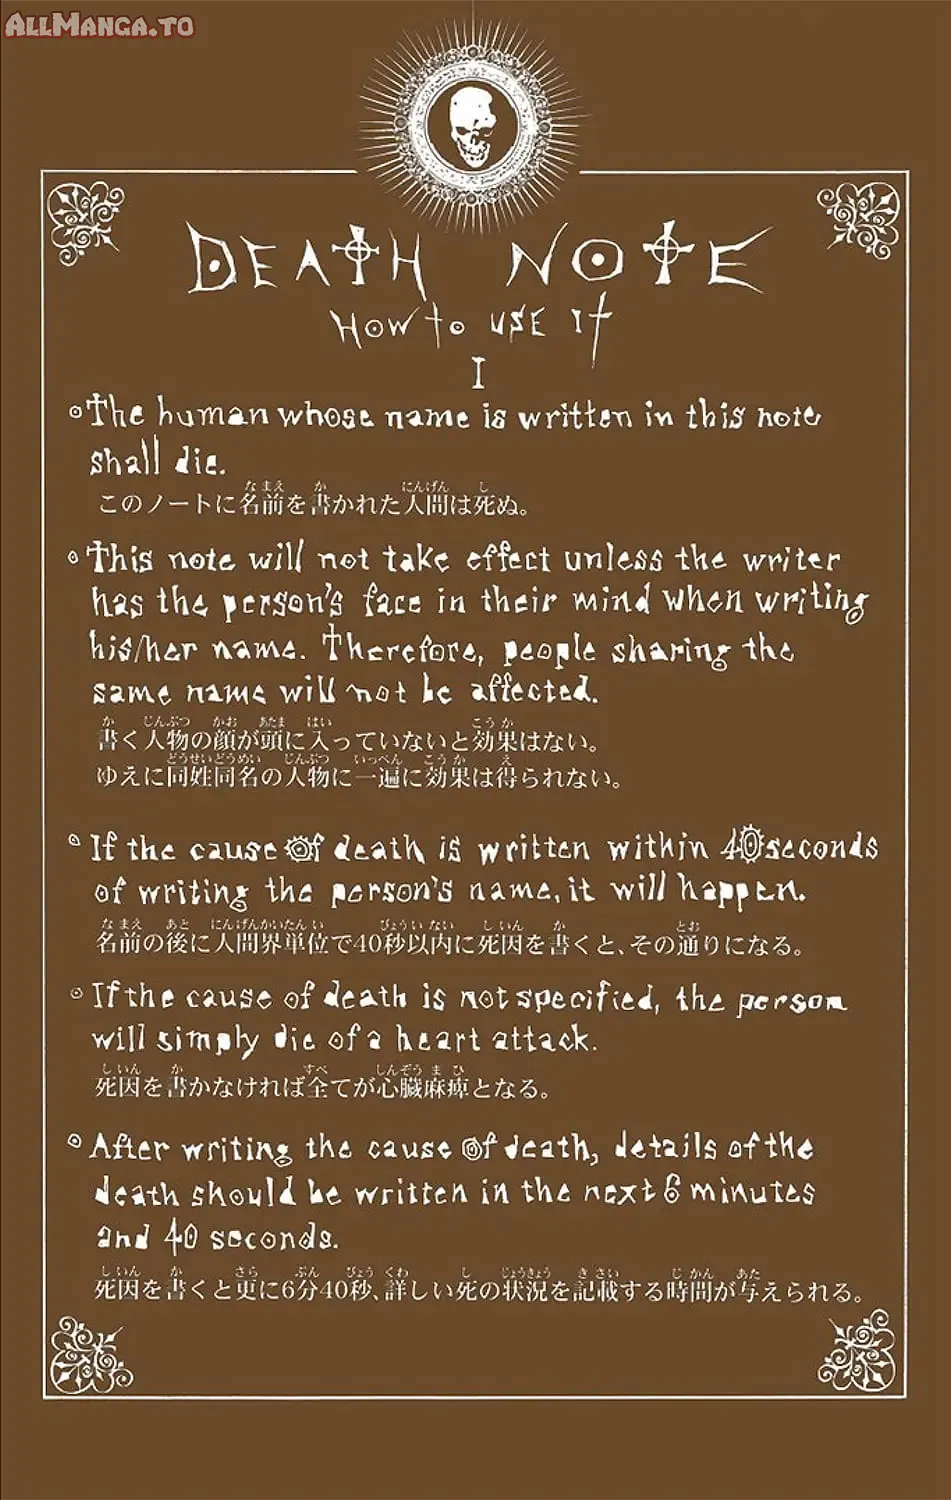 ALLMANGA.TO
DEATH NOTE
HOW to USE It
I
The human whose name is written in this note
shall die.
このノートに名前を書かれた人間は死ぬ。
This note will not take effect unless the writer
has the person's face in their mind when writing
his/her name. Therefore, people sharing the
same name will not be affected.
書く人物の顔が頭に入っていないと効果はない。
ゆえに同姓同名の人物に一遍に効果は得られない。
If the cause of death is written within 40 seconds
of writing the person's name, it will happen.
名前の後に人間界単位で40秒以内に死因を書くと、その通りになる。
If the cause of death is not specified, the person
will simply die of a heart attack.
死因を書かなければ全てが心臓麻痺となる。
After writing the cause of death, details of the
death should be written in the next 6 minutes
and 40 seconds.
死因を書くと更に6分40秒、詳しい死の状況を記載する時間が与えられる。